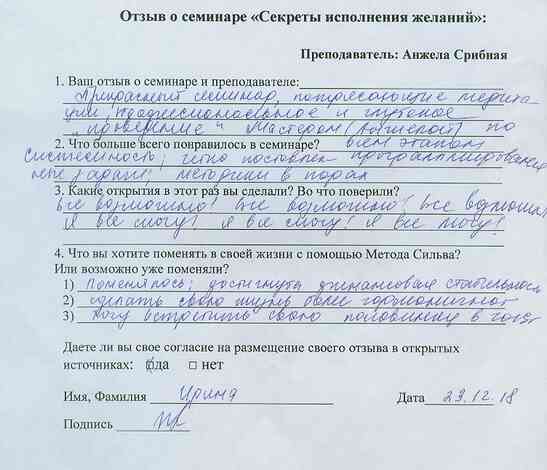 Отзыв о семинаре «Секреты исполнения желаний»:
Преподаватель: Анжела Срибная
1. Ваш отзыв о семинаре и преподавателе:
Прекрасный семинар, потрясающие медита
ции, профессиональное и глубокое
"проведение" Мастером (Анжелой) по
2. Что больше всего понравилось в семинаре? всем этапам
системность; четко поставлен
задачи; методики в парах
3. Какие открытия в этот раз вы сделали? Во что поверили?
Все возможно! Все возможно! Все возможно
Я все могу! Я все могу! Я все могу!
4. Что вы хотите поменять в своей жизни с помощью Метода Сильва?
Или возможно уже поменяли?
1) Поменялось; достигнута финансовая стабильность
2) сделать свою жизнь более гармоничной
3) хочу встретить свою половинку в
Даете ли вы свое согласие на размещение своего отзыва в открытых
источниках: да нет
Имя, Фамилия Ирина Дата 23.12.18
Подпись